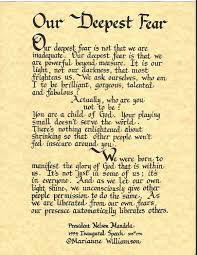 Our Deepest Fear
Our deepest fear is not that we are
inadequate. Our deepest fear is that we
are powerful beyond measure. It is our
light, not our darkness, that most
frightens us. We ask ourselves, who am I
to be brilliant, gorgeous, talented
and fabulous?
Actually, who are you
not to be?
You are a child of God. Your playing
small doesn't serve the world.
There's nothing enlightened about
shrinking so that other people won't
feel insecure around you.
We were born to
manifest the glory of God that is within
us. It's not just in some of us; it's
in everyone. And as we let our own
light shine, we unconsciously give other
people permission to do the same. As
we are liberated from our own fears,
our presence automatically liberates others.
President Nelson Mandela
1994 Inaugural Speech
©Marianne Williamson